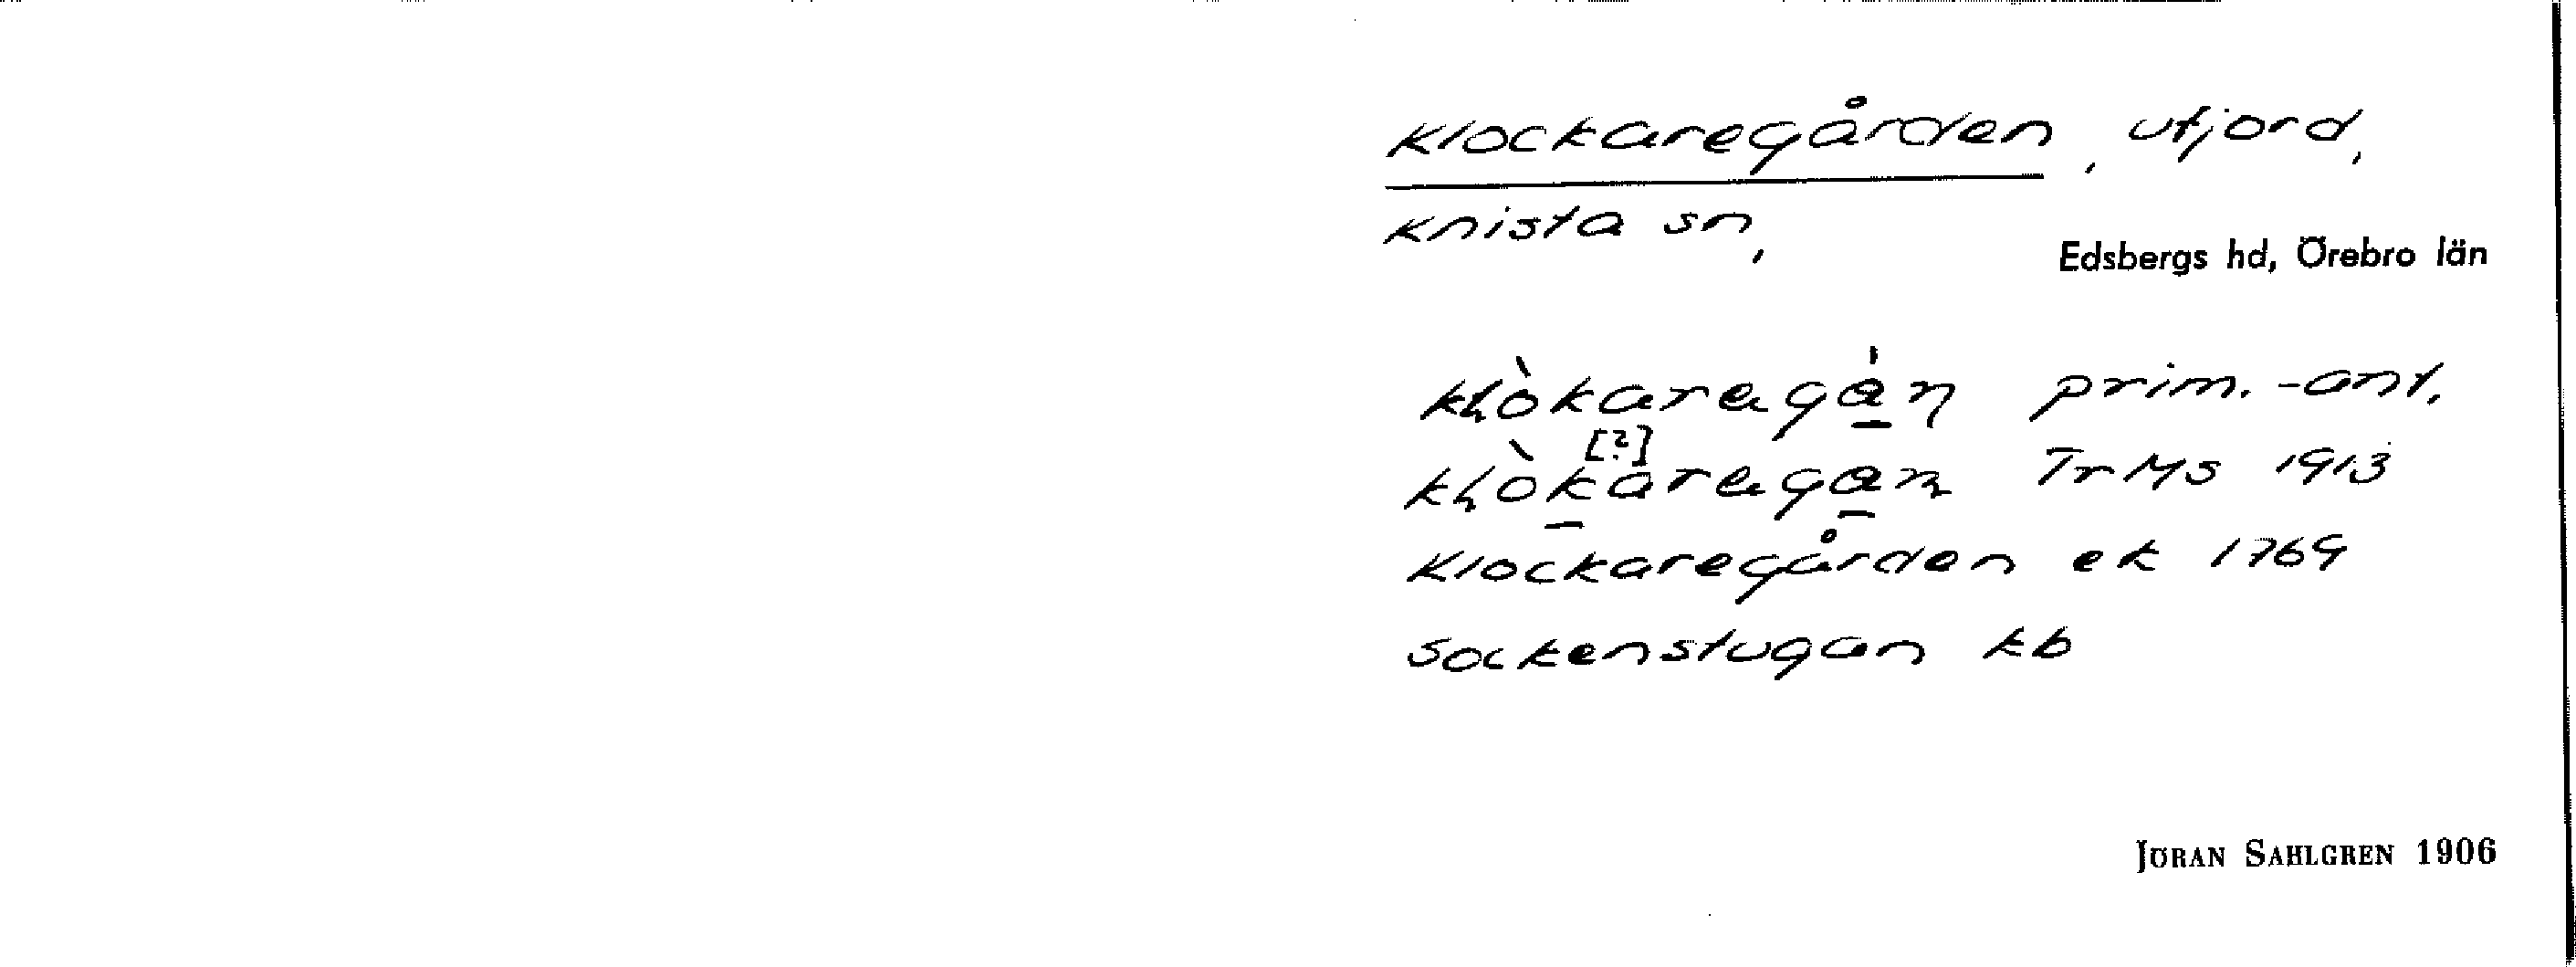 Klockaregården, utjord,
Knista sn,
Edsbergs hd, Örebro län
prim.-ant.
[?]
TrMs 1913
Klockaregården ek 1769
Sockenstugan kb
JÖRAN SAHLGREN 1906